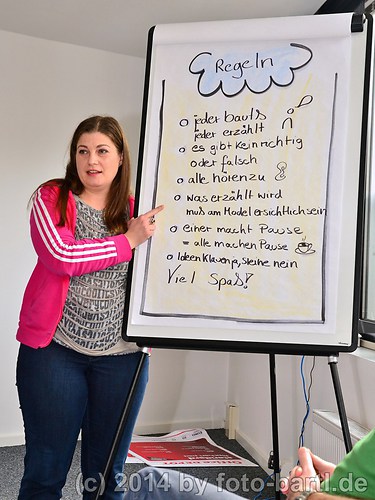 Regeln
o jeder baut's
jeder erzählt
o es gibt kein richtig
oder falsch
o alle hören zu
o was erzählt wird
muß am Model ersichtlich sein
o einer macht Pause
= alle machen Pause
o Ideenklau n ja, steine nein
Viel Spaß!
(c) 2014 by foto-bartl.de